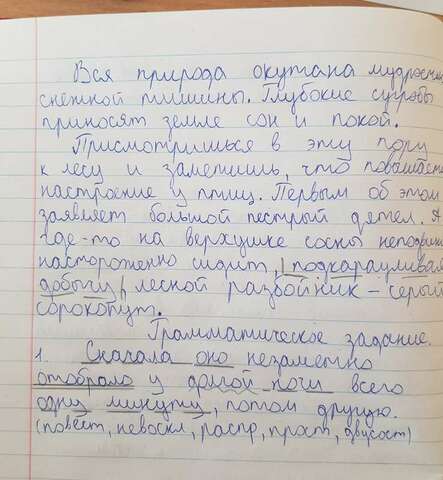 Вся природа окутана мудрость
снежной тишины. Глубокие сугробы
приносят земле сон и покой.
Присмотришься в эту пору
к лесу и заметишь, что повышается
настроение у птиц. Первым об этом
заявляет большой пестрый дятел. А
где-то на верхушке сосны неподвижно
настороженно сидит, подкарауливая
добычу, лесной разбойник – серый
сорокопут.
Грамматическое задание.
1. Сначала оно незаметно
отобрало у другой ночи всего
одну минуту, потом другую.
(повест, невоскл, распр, прост, двусост)